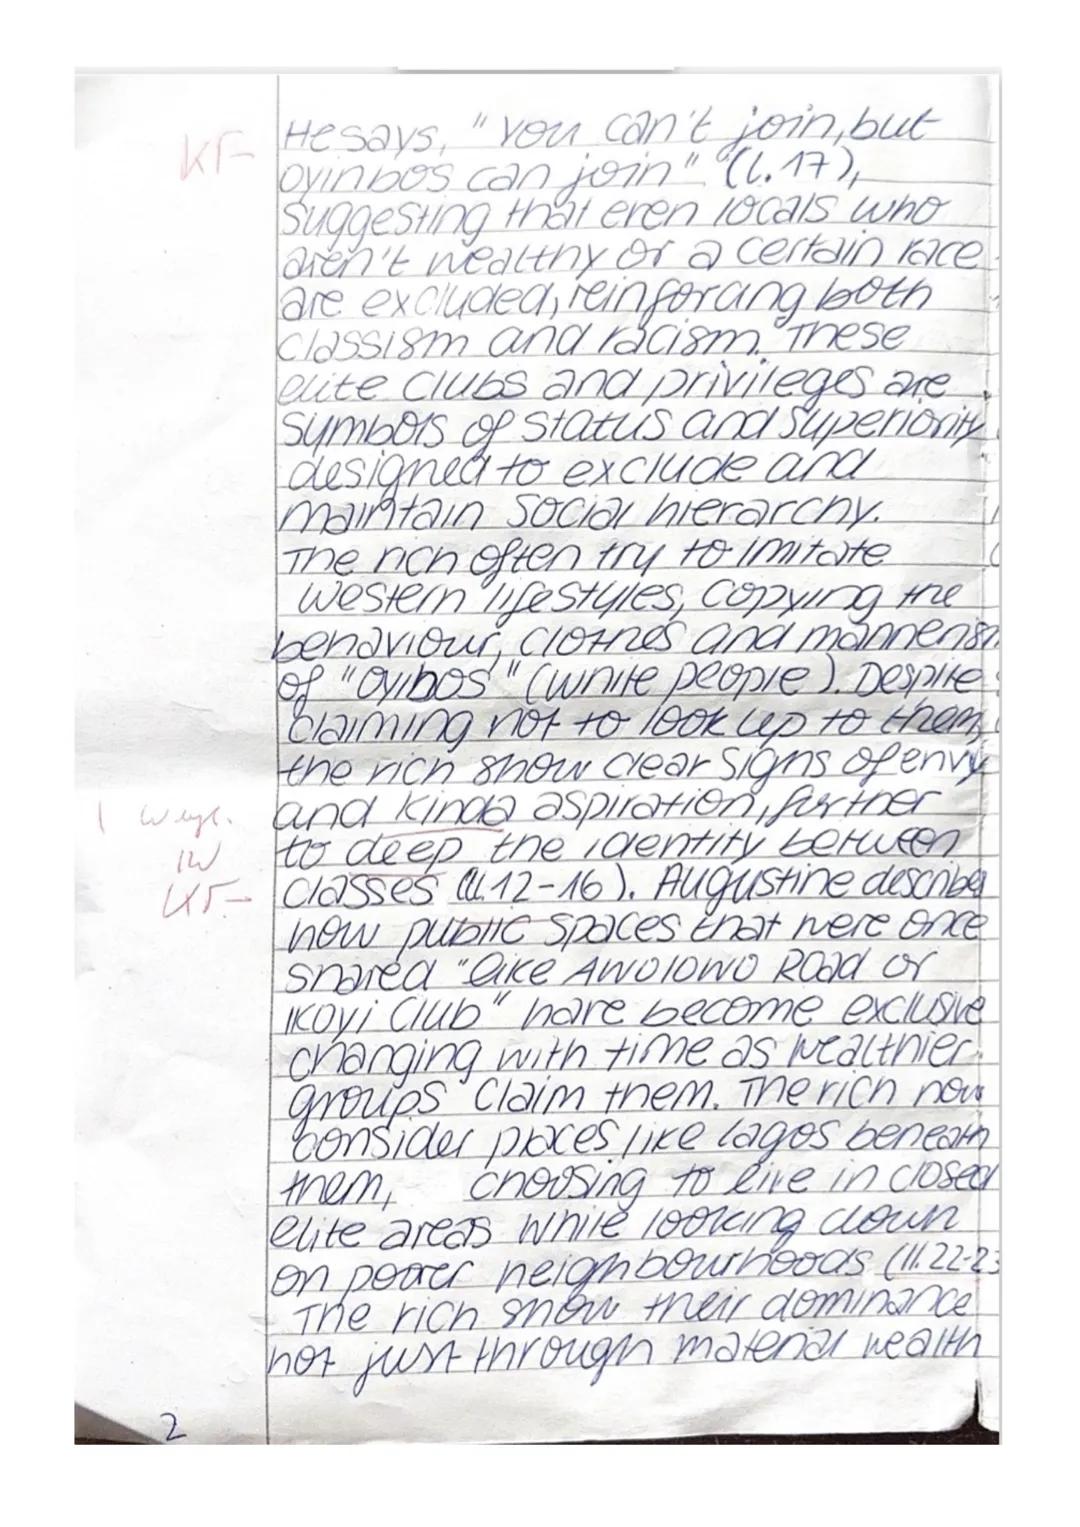 He says, "you can't join, but
KF-
oyinbos can join" (l. 17),
suggesting that even locals who
aren't wealthy or a certain race
are excluded, reinforcing both
classism and racism. These
elite clubs and privileges are
symbols of status and superiority
designed to exclude and
maintain social hierarchy.
The rich often try to imitate
western lifestyles, copying the
behaviour, clothes and mannerism
of "oyibos" (white people). Despite
claiming not to look up to them,
the rich show clear signs of envy
and kinda aspiration, further
to deep the identity between
classes (ll. 12-16). Augustine describes
how public spaces that were once
shared "like Awolowo Road or
Ikoyi Club" have become exclusive
changing with time as wealthier
groups claim them. The rich now
consider places like Lagos beneath
them, choosing to live in closed
elite areas while looking down
on poorer neighbourhoods (ll. 22-23
The rich show their dominance
not just through material wealth
2